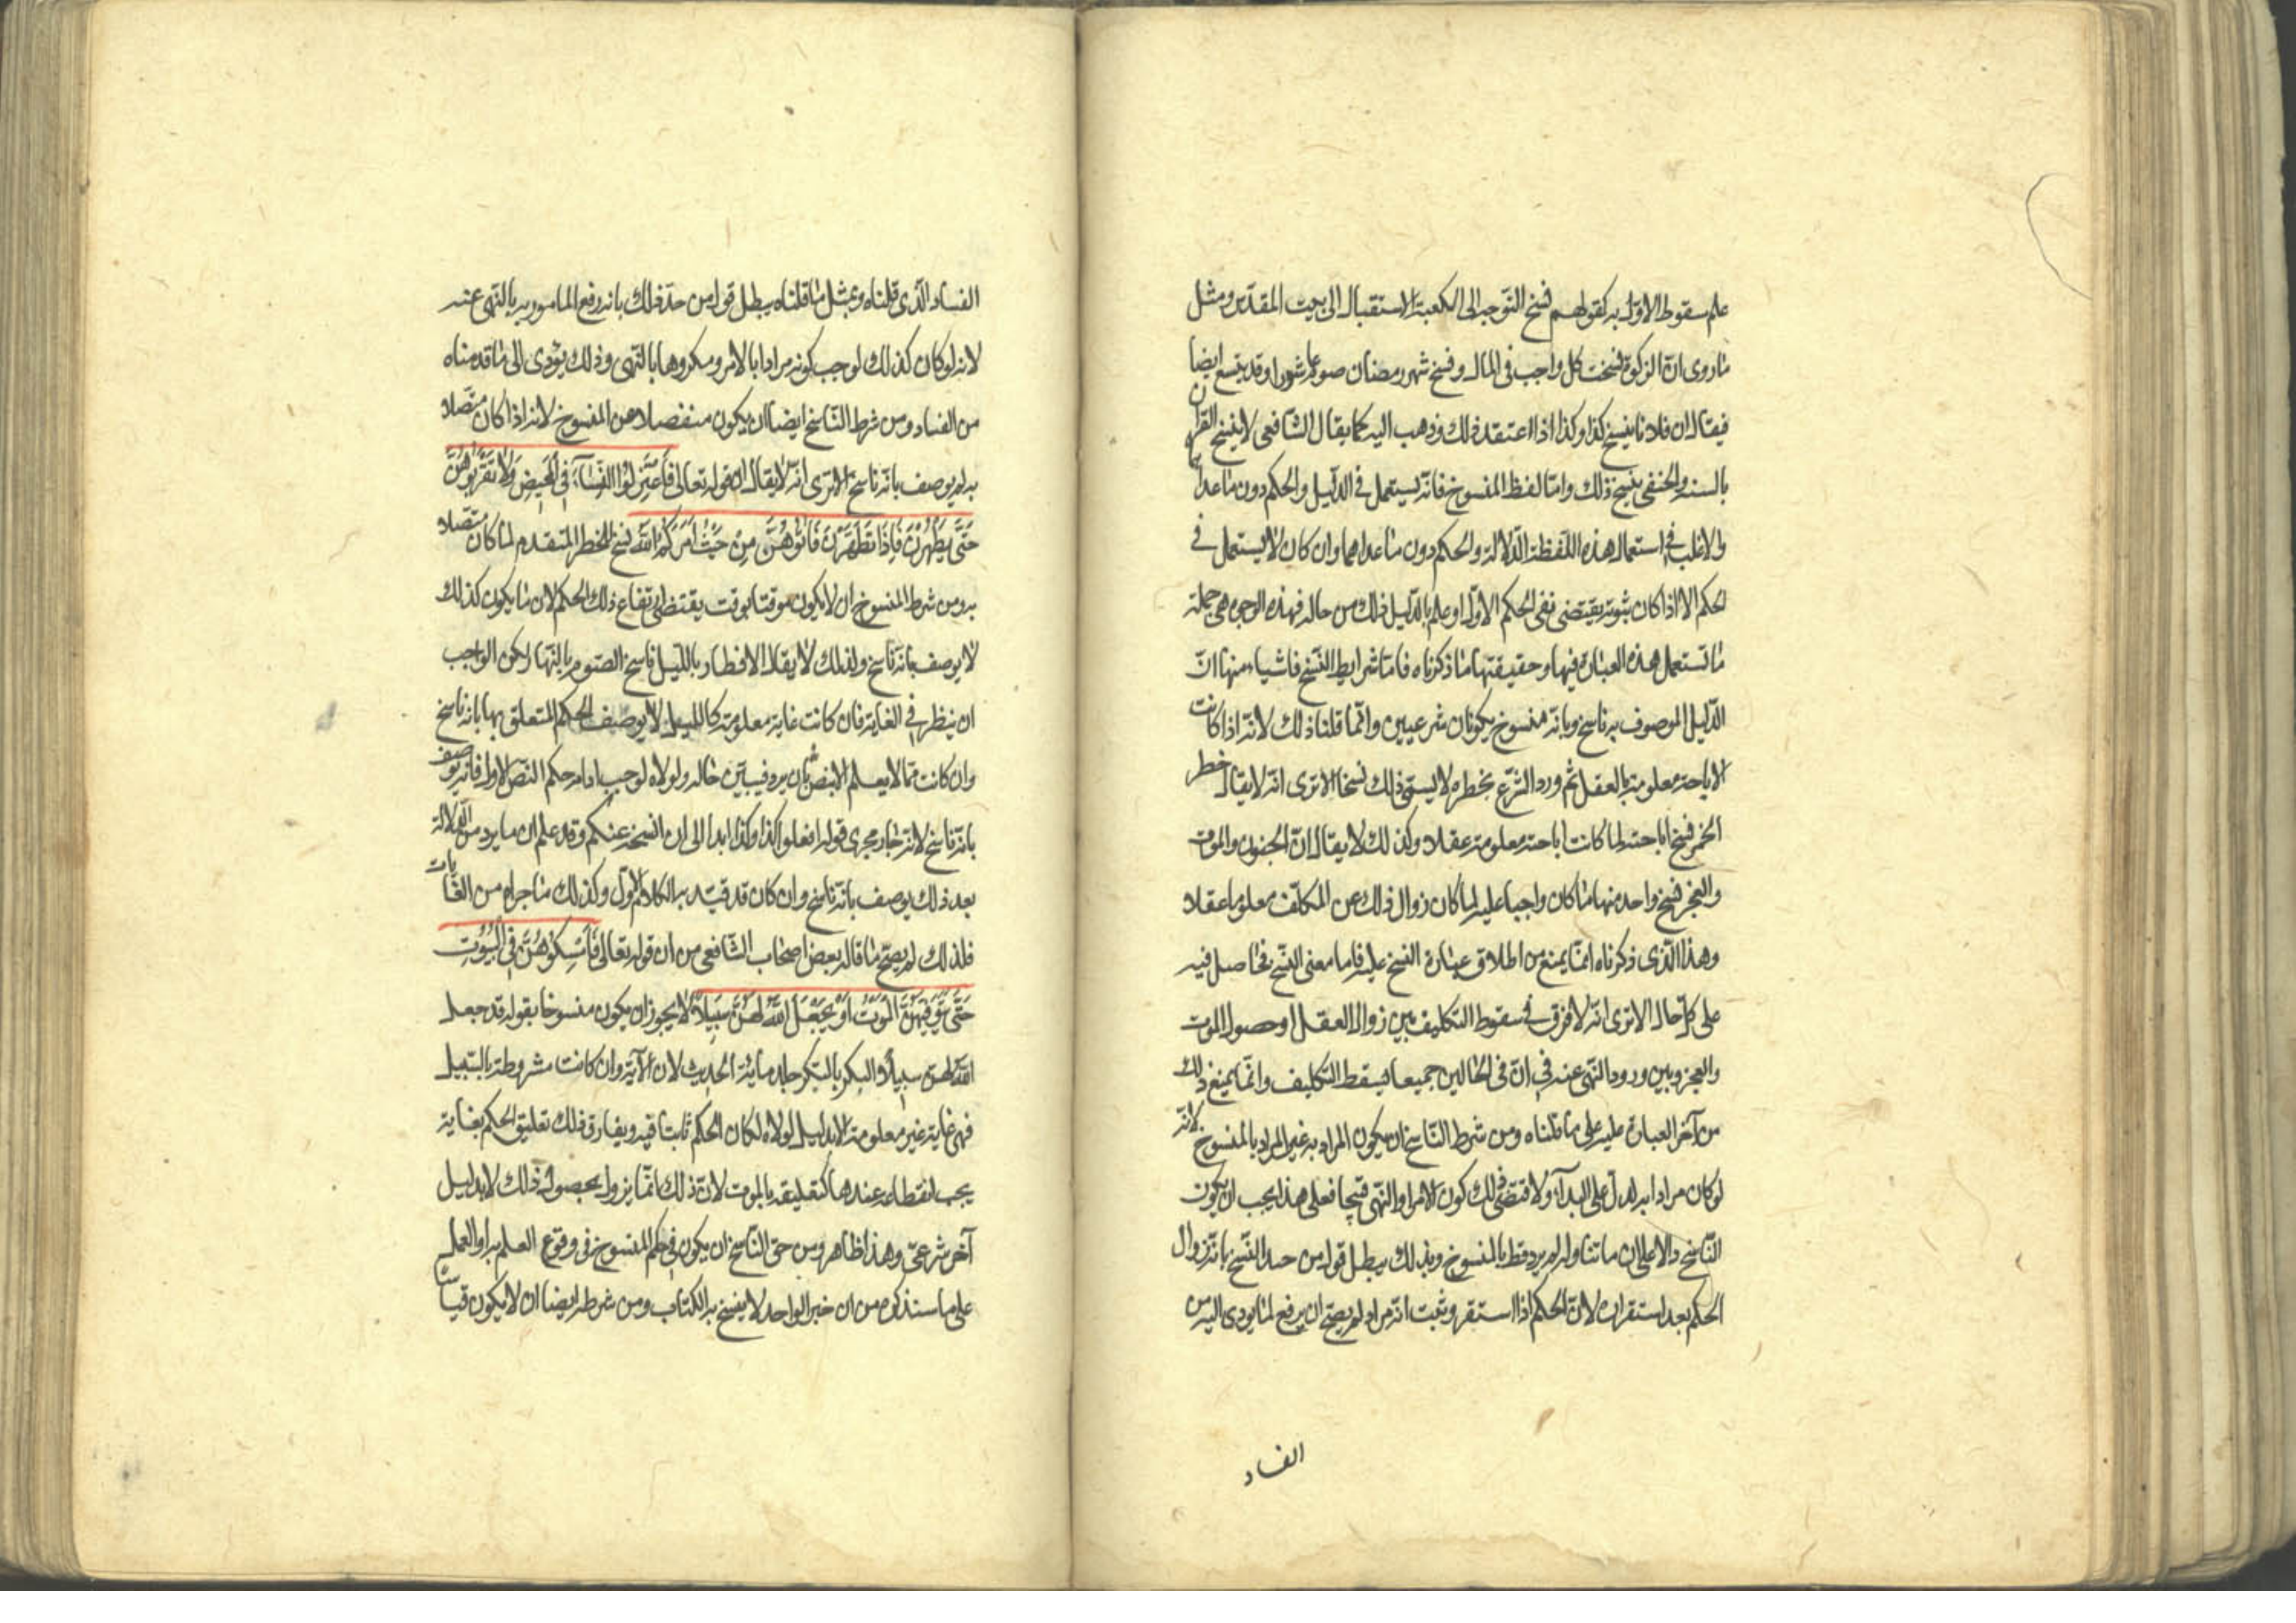 علم سقوط الاول به كقولهم نسخ التوجه الى الكعبة الاستقبال الى بيت المقدس ومثل
ما روى ان الزكوة نسخت كل واجب فى المال ونسخ شهر رمضان صوم عاشورا وقد يتسع ايضا
فيقال ان فلانا ينسخ كذا وكذا اذا اعتقد ذلك وذهب اليه كما يقال الشافعى لا ينسخ القران
بالسنه والحنفى ينسخ ذلك وامّا لفظ المنسوخ فانّه يستعمل فى الدّليل والحكم دون ما عداهما
والاغلب فى استعمال هذه اللّفظة الدّلالة والحكم دون ما عداهما وان كان لا يستعمل فى
الحكم الا اذا كان ثبوته يقتضى نفى الحكم الاوّل او علم بالدّليل ذلك من حاله فهذه الوجوه هى جملة
ما تستعمل هذه العبارة فيها وحقيقتها ما ذكرناه فامّا شرايط النّسخ فاشياء منها انّ
الدّليل الموصوف بر ناسخ وبانّه منسوخ يكونان شرعيين وانّما قلنا ذلك لانّه اذا كانت
الاباحة معلومة بالعقل ثم ورد الشّرع بخطره لا يسمّى ذلك نسخا الا ترى انّه لا يقال خطر
الخمر نسخ اباحته لما كانت اباحته معلومة عقلا وكذلك لا يقال انّ الجنون والموت
والعجز نسخ واحد منها ما كان واجبا عليه لما كان زوال ذلك عن المكلّف معلوما عقلا
وهذا الّذى ذكرناه انّما يمنع من اطلاق عبارة النسخ عليه فاما معنى النّسخ فحاصل فيه
على كلّ حال الا ترى انّه لا فرق فى سقوط التكليف بين زوال العقل او حصول الموت
والعجز وبين ورود النّهى عنه فى انّ فى الحالين جميعا يسقط التكليف وانّما يمنع ذلك
من آخر العبارة عليه على ما قلناه ومن شرط النّاسخ ان يكون المراد به غير المراد بالمنسوخ لانّه
لو كان مرادا به لدلّ على البدآء ولاقتضى ذلك كون الامر او النّهى قبيحا فعلى هذا يجب ان يكون
النّاسخ دالا على ان ما تناوله لم يرد قط بالمنسوخ وبذلك يبطل قول من حدّ النّسخ بانّه زوال
الحكم بعد استقراره لانّ الحكم اذا استقر وثبت انّه مراد لم يصحّ ان يرفع لما يودى اليه من
الفساد
الفساد الّذى قلناه وبمثل ما قلناه يبطل قول من حدّ ذلك بانه رفع المامور به بالنّهى عنه
لانه لو كان كذلك لوجب كونه مرادا بالامر ومكروها بالنّهى وذلك يؤدى الى ما قدمناه
من الفساد ومن شرط النّاسخ ايضا ان يكون منفصلا عن المنسوخ لانه اذا كان متّصلا
به لم يوصف بانّه ناسخ الا ترى انّه لا يقال ان قوله تعالى فَاعْتَزِلُوا النِّسَآءَ فِى الْمَحِيضِ وَلَا تَقْرَبُوهُنَّ
حَتَّى يَطْهُرْنَ فَإِذَا تَطَهَّرْنَ فَأْتُوهُنَّ مِنْ حَيْثُ اَمَرَكُمُ اللّٰهُ نسخ الخطر المتقدم لما كان متّصلا
به ومن شرط المنسوخ ان لا يكون موقتا بوقت يقتضى ارتفاع ذلك الحكم لان ما يكون كذلك
لا يوصف بانّه ناسخ ولذلك لا يقال الافطار بالليل ناسخ الصّوم بالنّهار ولكن الواجب
ان ينظر فى الغاية فان كانت غاية معلومة كالليل لا يوصف الحكم المتعلق بها بانه ناسخ
وان كانت ممّا لا يعلم الا بنصّ ثان يرد فيبيّن حاله ولولاه لوجب ادامه حكم النّص الاول فانّه يوصف
بانّه ناسخ لانّه جار مجرى قوله افعلوا كذا وكذا ابدا الى ان انسخه عنكم وقد علم ان ما يرد من الدّلالة
بعد ذلك يوصف بانّه ناسخ وان كان قد قيّد به الكلام الاوّل وكذلك ما جراه من الغايات
فلذلك لم يصحّ ما قاله بعض اصحاب الشّافعى من ان قوله تعالى فَأَمْسِكُوهُنَّ فِى الْبُيُوتِ
حَتَّى يَتَوَفّٰيهُنَّ الْمَوْتُ اَوْ يَجْعَلَ اللّٰهُ لَهُنَّ سَبِيلًا لا يجوز ان يكون منسوخا بقوله قد جعل
اللّٰه لهن سبيلا والبكر بالبكر جلد مائة الحديث لان الآية وان كانت مشروطة بالسّبيل
فهى غاية غير معلومة الا بدليل لولاه لكان الحكم ثابتا فيه ويفارق ذلك تعليق الحكم بغاية
يجب انقطاعه عندها كتعليقه بالموت لانّ ذلك انّما يزول بحصول ذلك لا بدليل
آخر شرعىّ وهذا ظاهر ومن حق النّاسخ ان يكون فى حكم المنسوخ فى وقوع العلم به او العمل
على ما سنذكره من ان خبر الواحد لا ينسخ به الكتاب ومن شرطه ايضا ان لا يكون قياسا